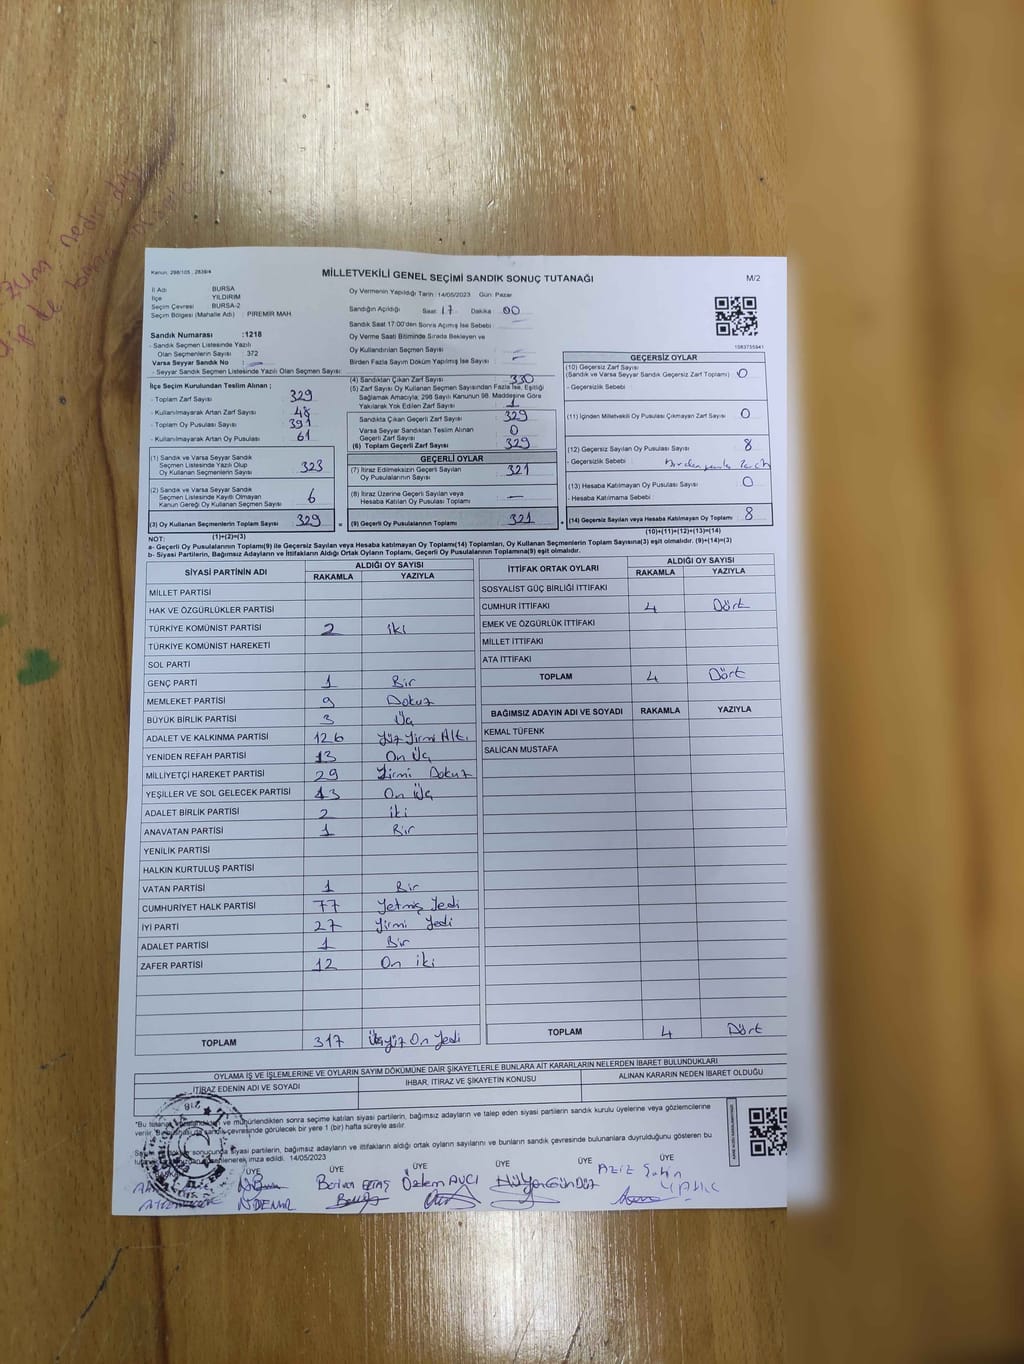 Kanun: 298/105 , 2839/4
MİLLETVEKİLİ GENEL SEÇİMİ SANDIK SONUÇ TUTANAĞI
M/2
İl Adı BURSA
İlçe YILDIRIM
Seçim Çevresi BURSA-2
Seçim Bölgesi (Mahalle Adı) : PİREMİR MAH.
Sandık Numarası :1218
- Sandık Seçmen Listesinde Yazılı
Olan Seçmenlerin Sayısı : 372
Varsa Seyyar Sandık No :
- Seyyar Sandık Seçmen Listesinde Yazılı Olan Seçmen Sayısı:
Oy Vermenin Yapıldığı Tarih :14/05/2023 Gün: Pazar
Sandığın Açıldığı Saat: 17 Dakika 00
Sandık Saat 17:00'den Sonra Açılmış İse Sebebi :
Oy Verme Saati Bitiminde Sırada Bekleyen ve
Oy Kullandırılan Seçmen Sayısı
Birden Fazla Sayım Döküm Yapılmış İse Sayısı :
1083755941
İlçe Seçim Kurulundan Teslim Alınan ;
- Toplam Zarf Sayısı : 329
- Kullanılmayarak Artan Zarf Sayısı :
- Toplam Oy Pusulası Sayısı : 391
- Kullanılmayarak Artan Oy Pusulası : 61
(1) Sandık ve Varsa Seyyar Sandık
Seçmen Listesinde Yazılı Olup
Oy Kullanan Seçmenlerin Sayısı 323
(2) Sandık ve Varsa Seyyar Sandık
Seçmen Listesinde Kayıtlı Olmayan
Kanun Gereği Oy Kullanan Seçmen Sayısı 6
(3) Oy Kullanan Seçmenlerin Toplam Sayısı 329
(1)+(2)=(3)
(4) Sandıktan Çıkan Zarf Sayısı : 330
(5) Zarf Sayısı Oy Kullanan Seçmen Sayısından Fazla İse, Eşitliği
Sağlamak Amacıyla; 298 Sayılı Kanunun 98. Maddesine Göre
Yakılarak Yok Edilen Zarf Sayısı : 1
Sandıkta Çıkan Geçerli Zarf Sayısı : 329
Varsa Seyyar Sandıktan Teslim Alınan
Geçerli Zarf Sayısı : 0
(6) Toplam Geçerli Zarf Sayısı : 329
GEÇERLİ OYLAR
(7) İtiraz Edilmeksizin Geçerli Sayılan
Oy Pusulalarının Sayısı : 321
(8) İtiraz Üzerine Geçerli Sayılan veya
Hesaba Katılan Oy Pusulası Toplamı —
= (9) Geçerli Oy Pusulalarının Toplamı 321
GEÇERSİZ OYLAR
(10) Geçersiz Zarf Sayısı
(Sandık ve Varsa Seyyar Sandık Geçersiz Zarf Toplamı) : 0
- Geçersizlik Sebebi :
(11) İçinden Milletvekili Oy Pusulası Çıkmayan Zarf Sayısı : 0
(12) Geçersiz Sayılan Oy Pusulası Sayısı : 8
- Geçersizlik Sebebi :
(13) Hesaba Katılmayan Oy Pusulası Sayısı : 0
- Hesaba Katılmama Sebebi :
+ (14) Geçersiz Sayılan veya Hesaba Katılmayan Oy Toplamı : 8
(10)+(11)+(12)+(13)=(14)
NOT:
a- Geçerli Oy Pusulalarının Toplamı(9) ile Geçersiz Sayılan veya Hesaba katılmayan Oy Toplamı(14) Toplamları, Oy Kullanan Seçmenlerin Toplam Sayısına(3) eşit olmalıdır. (9)+(14)=(3)
b- Siyasi Partilerin, Bağımsız Adayların ve İttifakların Aldığı Ortak Oyların Toplamı, Geçerli Oy Pusulalarının Toplamına(9) eşit olmalıdır.
SİYASİ PARTİNİN ADI ALDIĞI OY SAYISI
RAKAMLA YAZIYLA
MİLLET PARTİSİ
HAK VE ÖZGÜRLÜKLER PARTİSİ
TÜRKİYE KOMÜNİST PARTİSİ 2 iki
TÜRKİYE KOMÜNİST HAREKETİ
SOL PARTİ
GENÇ PARTİ 1 Bir
MEMLEKET PARTİSİ 9 Dokuz
BÜYÜK BİRLİK PARTİSİ 3 Üç
ADALET VE KALKINMA PARTİSİ 126 Yüz Yirmi Altı
YENİDEN REFAH PARTİSİ 13 On Üç
MİLLİYETÇİ HAREKET PARTİSİ 29 Yirmi Dokuz
YEŞİLLER VE SOL GELECEK PARTİSİ 13 On Üç
ADALET BİRLİK PARTİSİ 2 iki
ANAVATAN PARTİSİ 1 Bir
YENİLİK PARTİSİ
HALKIN KURTULUŞ PARTİSİ
VATAN PARTİSİ 1 Bir
CUMHURİYET HALK PARTİSİ 77 Yetmiş Yedi
İYİ PARTİ 27 Yirmi Yedi
ADALET PARTİSİ 1 Bir
ZAFER PARTİSİ 12 On iki
TOPLAM 317 Üçyüz On Yedi
İTTİFAK ORTAK OYLARI ALDIĞI OY SAYISI
RAKAMLA YAZIYLA
SOSYALİST GÜÇ BİRLİĞİ İTTİFAKI
CUMHUR İTTİFAKI 4 Dört
EMEK VE ÖZGÜRLÜK İTTİFAKI
MİLLET İTTİFAKI
ATA İTTİFAKI
TOPLAM 4 Dört
BAĞIMSIZ ADAYIN ADI VE SOYADI RAKAMLA YAZIYLA
KEMAL TÜFENK
SALİCAN MUSTAFA
TOPLAM 4 Dört
OYLAMA İŞ VE İŞLEMLERİNE VE OYLARIN SAYIM DÖKÜMÜNE DAİR ŞİKAYETLERLE BUNLARA AİT KARARLARIN NELERDEN İBARET BULUNDUKLARI
İTİRAZ EDENİN ADI VE SOYADI İHBAR, İTİRAZ VE ŞİKAYETİN KONUSU ALINAN KARARIN NEDEN İBARET OLDUĞU
*Bu ve mühürlendikten sonra seçime katılan siyasi partilerin, bağımsız adayların ve talep eden siyasi partilerin sandık kurulu üyelerine veya gözlemcilerine
verilir. sandık çevresinde görülecek bir yere 1 (bir) hafta süreyle asılır.
sonucunda siyasi partilerin, bağımsız adayların ve ittifakların aldığı ortak oyların sayılarını ve bunların sandık çevresinde bulunanlara duyurulduğunu gösteren bu
düzenlenerek imza edildi. 14/05/2023
ÜYE ÜYE ÜYE ÜYE ÜYE ÜYE
Özlem AVCI Hülya GÜNDÜZ Aziz Şahin
N DEMİR